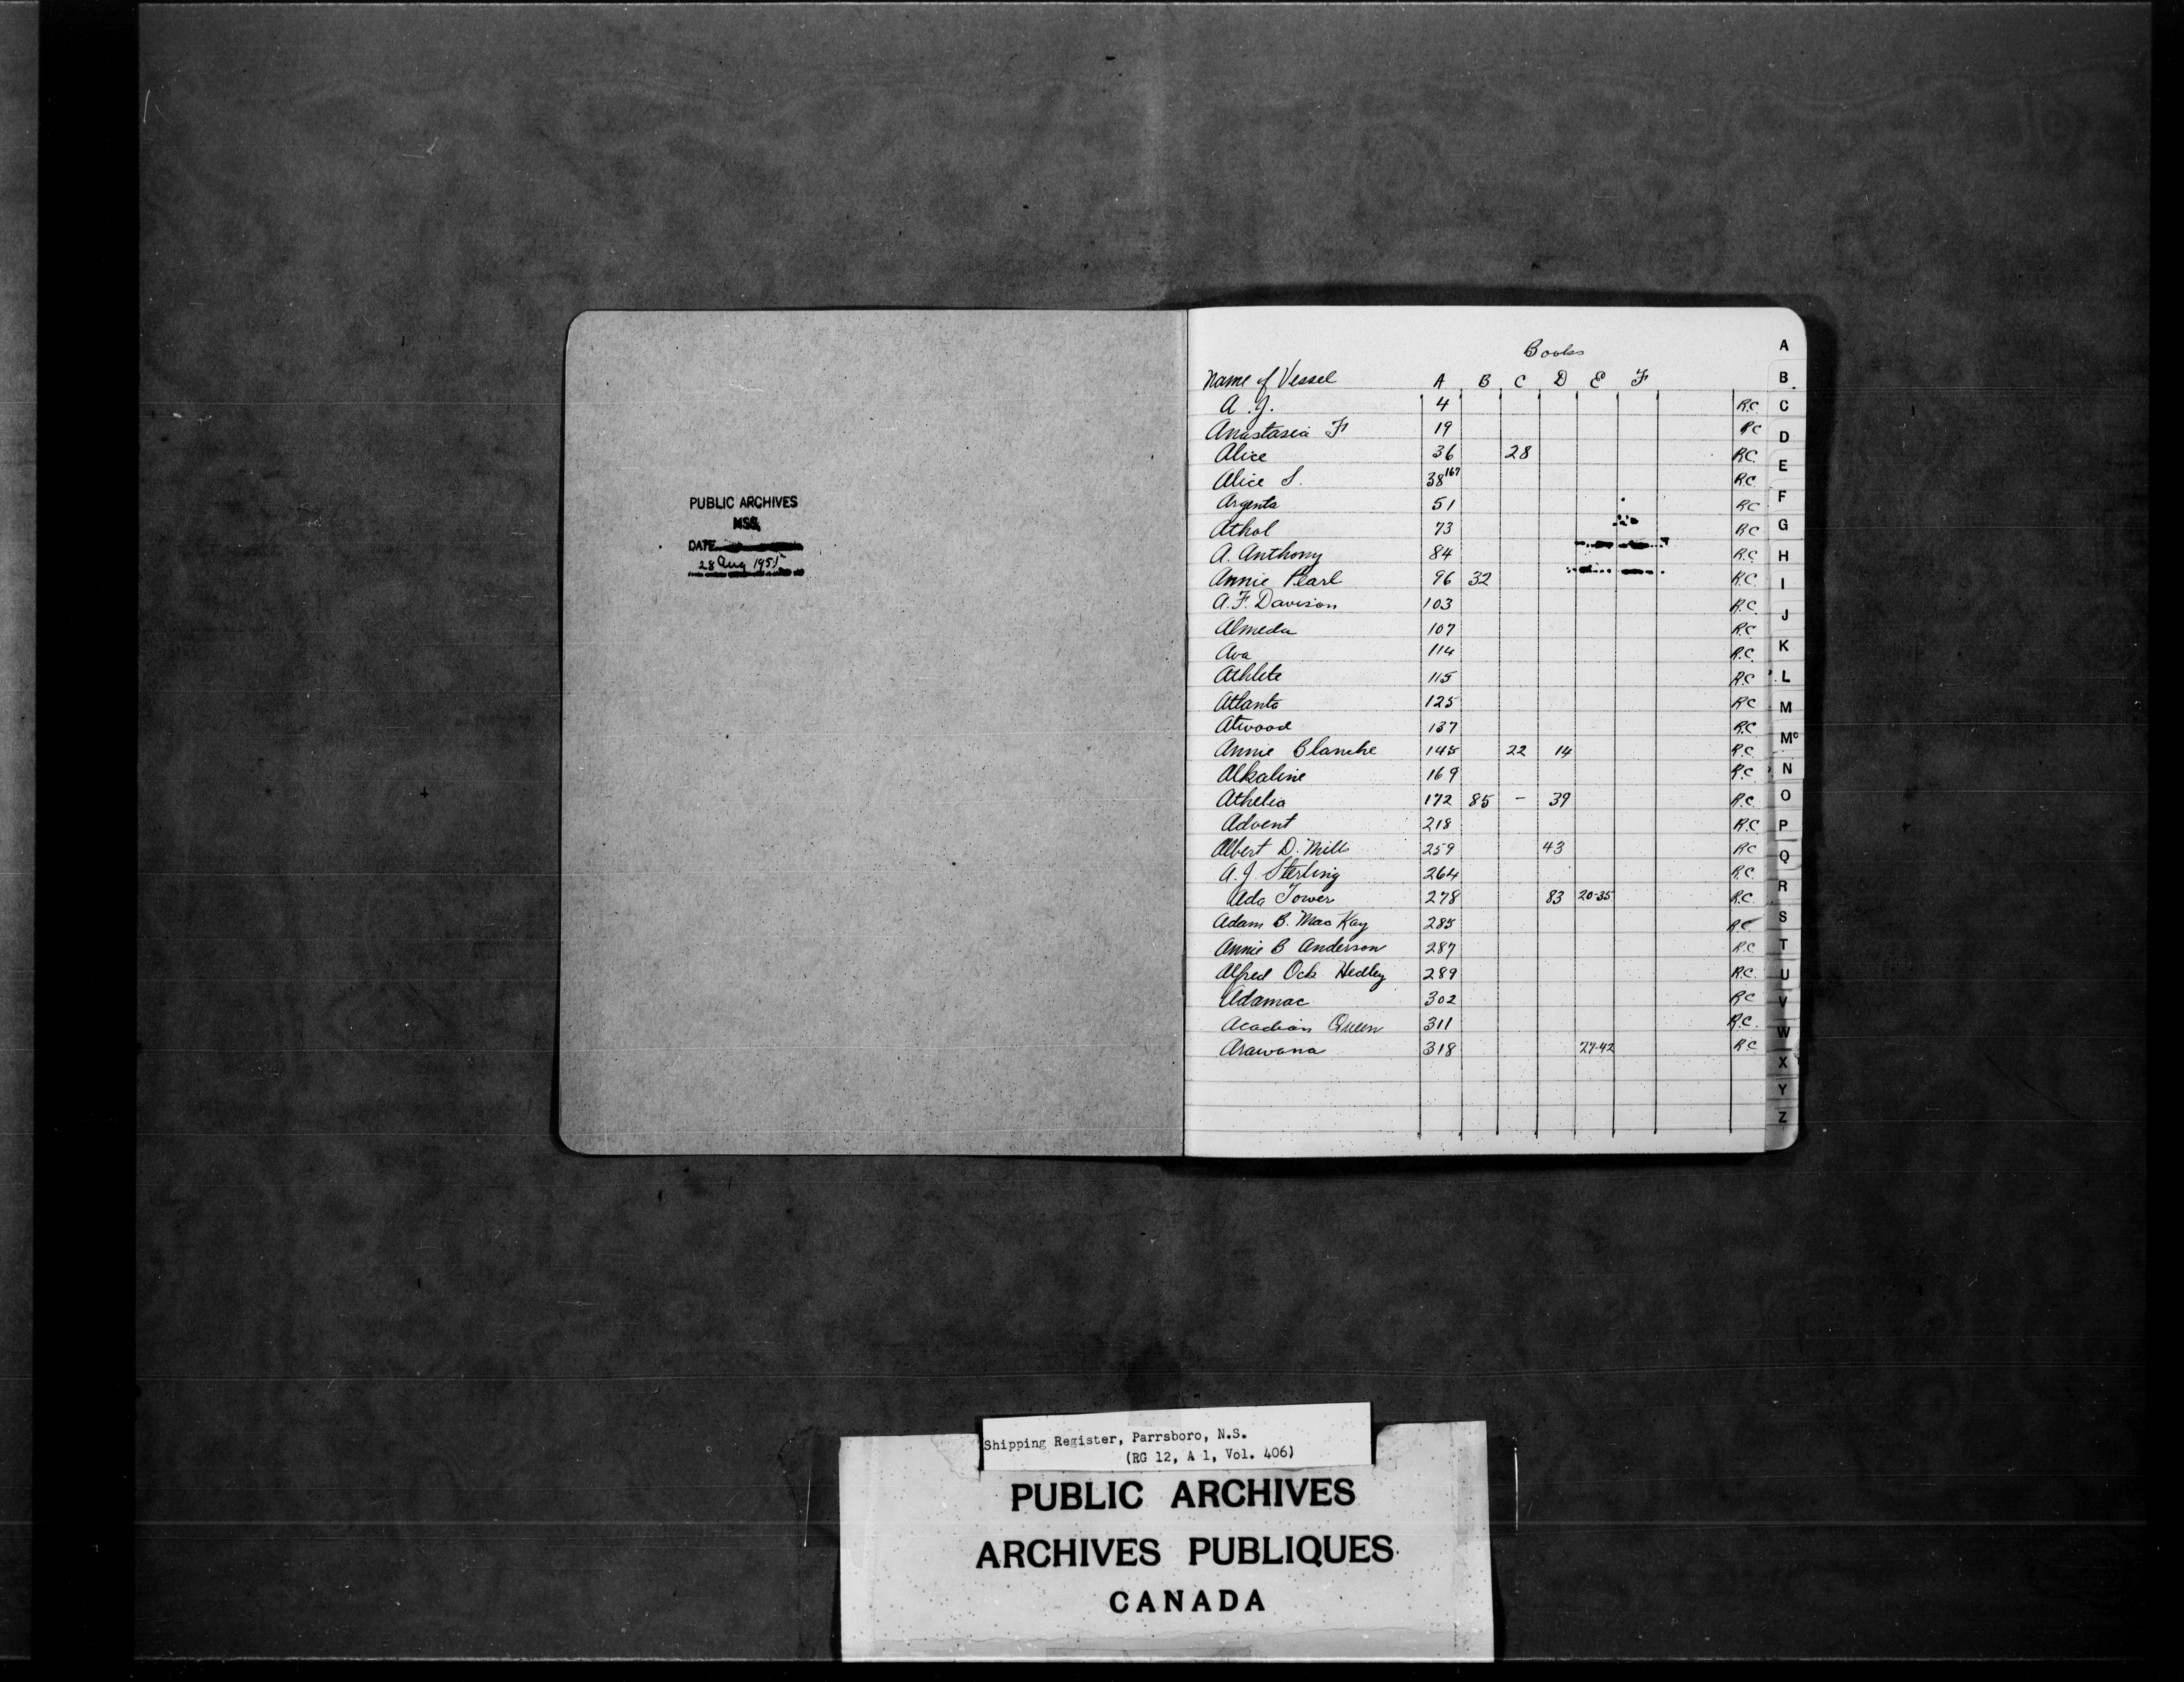 PUBLIC ARCHIVES
MSS.
DATE
28 Aug 1955
Books
Name of Vessel A B C D E F
A. J. 4 R.C.
Anastasia F 19 RC
Alice 36 28 R.C.
Alice S. 38 167 R.C.
Argenta 51 RC
Athol 73 RC
A. Anthony 84 R.C.
Annie Pearl 96 32 R.C.
A. F. Davison 103 R.C.
Almeda 107 R.C.
Ava 114 R.C.
Athlete 115 R.C.
Atlanta 125 RC
Atwood 137 R.C.
Annie Blanche 145 22 14 R.C.
Alkaline 169 R.C.
Athelia 172 85 - 39 R.C.
Advent 218 R.C.
Albert D. Mills 259 43 RC
A. J Sterling 264 R.C.
Ada Tower 278 83 20-35 R.C.
Adam B. MacKay 285 RC
Annie B Anderson 287 R.C.
Alfred Ock Hedley 289 R.C.
Adamac 302 RC
Acadian Queen 311 R.C.
Arawana 318 27-42 R.C
A
B
C
D
E
F
G
H
I
J
K
L
M
Mc
N
O
P
Q
R
S
T
U
V
W
X
Y
Z
Shipping Register, Parrsboro, N.S.
(RG 12, A 1, Vol. 406)
PUBLIC ARCHIVES
ARCHIVES PUBLIQUES
CANADA